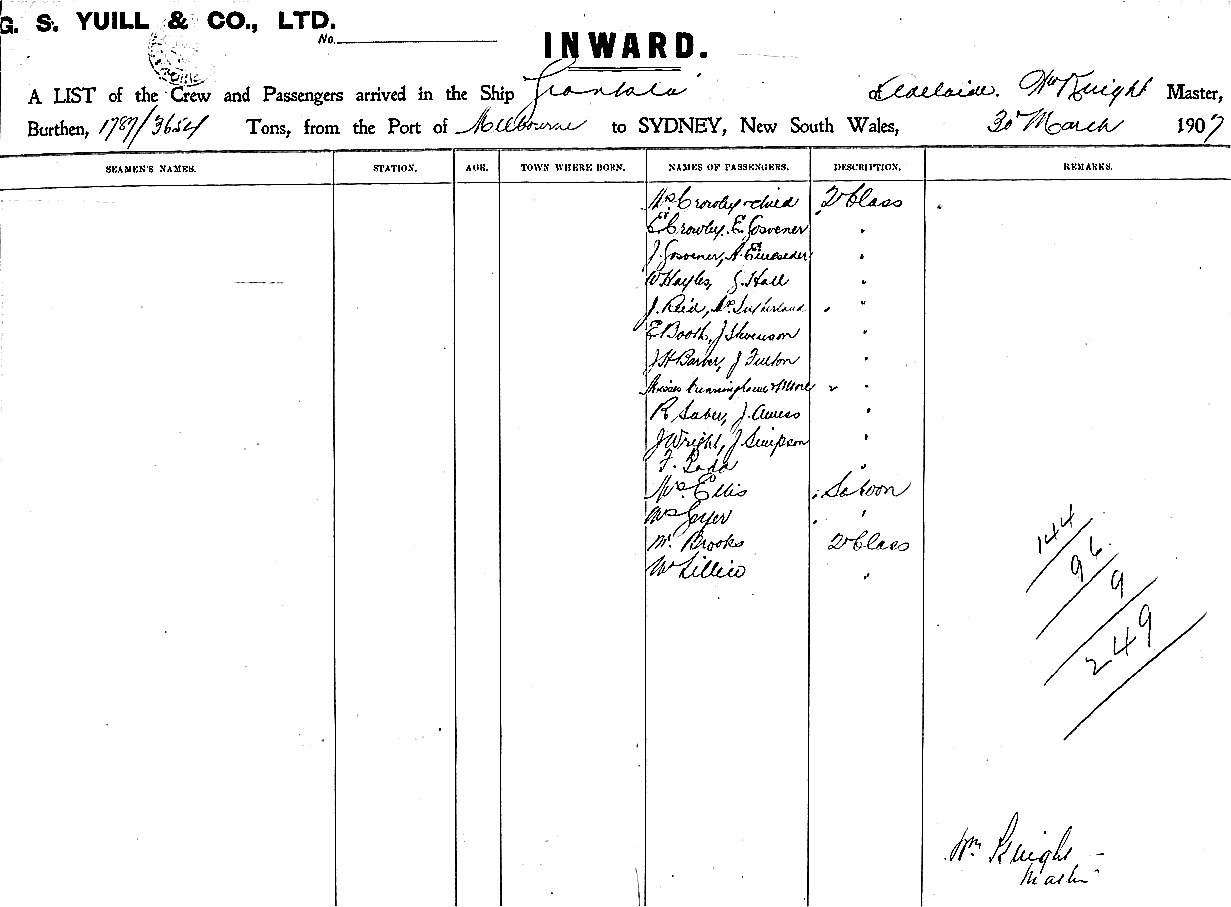 G. S. YUILL & CO., LTD.
No.
INWARD.
A LIST of the Crew and Passengers arrived in the Ship Grantala Adelaide. Wm Knight Master,
Burthen, 1787/3654 Tons, from the Port of Melbourne to SYDNEY, New South Wales, 30 March 1907
SEAMEN'S NAMES. STATION. AGE. TOWN WHERE BORN. NAMES OF PASSENGERS. DESCRIPTION. REMARKS.
Mrs Crowley & child 2nd Class
E Crowley, E. Gosvener "
J. Gosvener, A. "
W Hayles, G. Hall "
J. Reid, Mrs Sutherland "
E Booth, J Stevenson "
J H Barber, J Fulton "
Misses Cunninghame & More "
R Saber, J. Amess "
J Wright, J Simpson "
F. Rada "
Mrs Ellis Saloon
Mrs "
Mr Brooks 2nd Class
W Lillico "
144
96
9
249
Wm Knight
Master